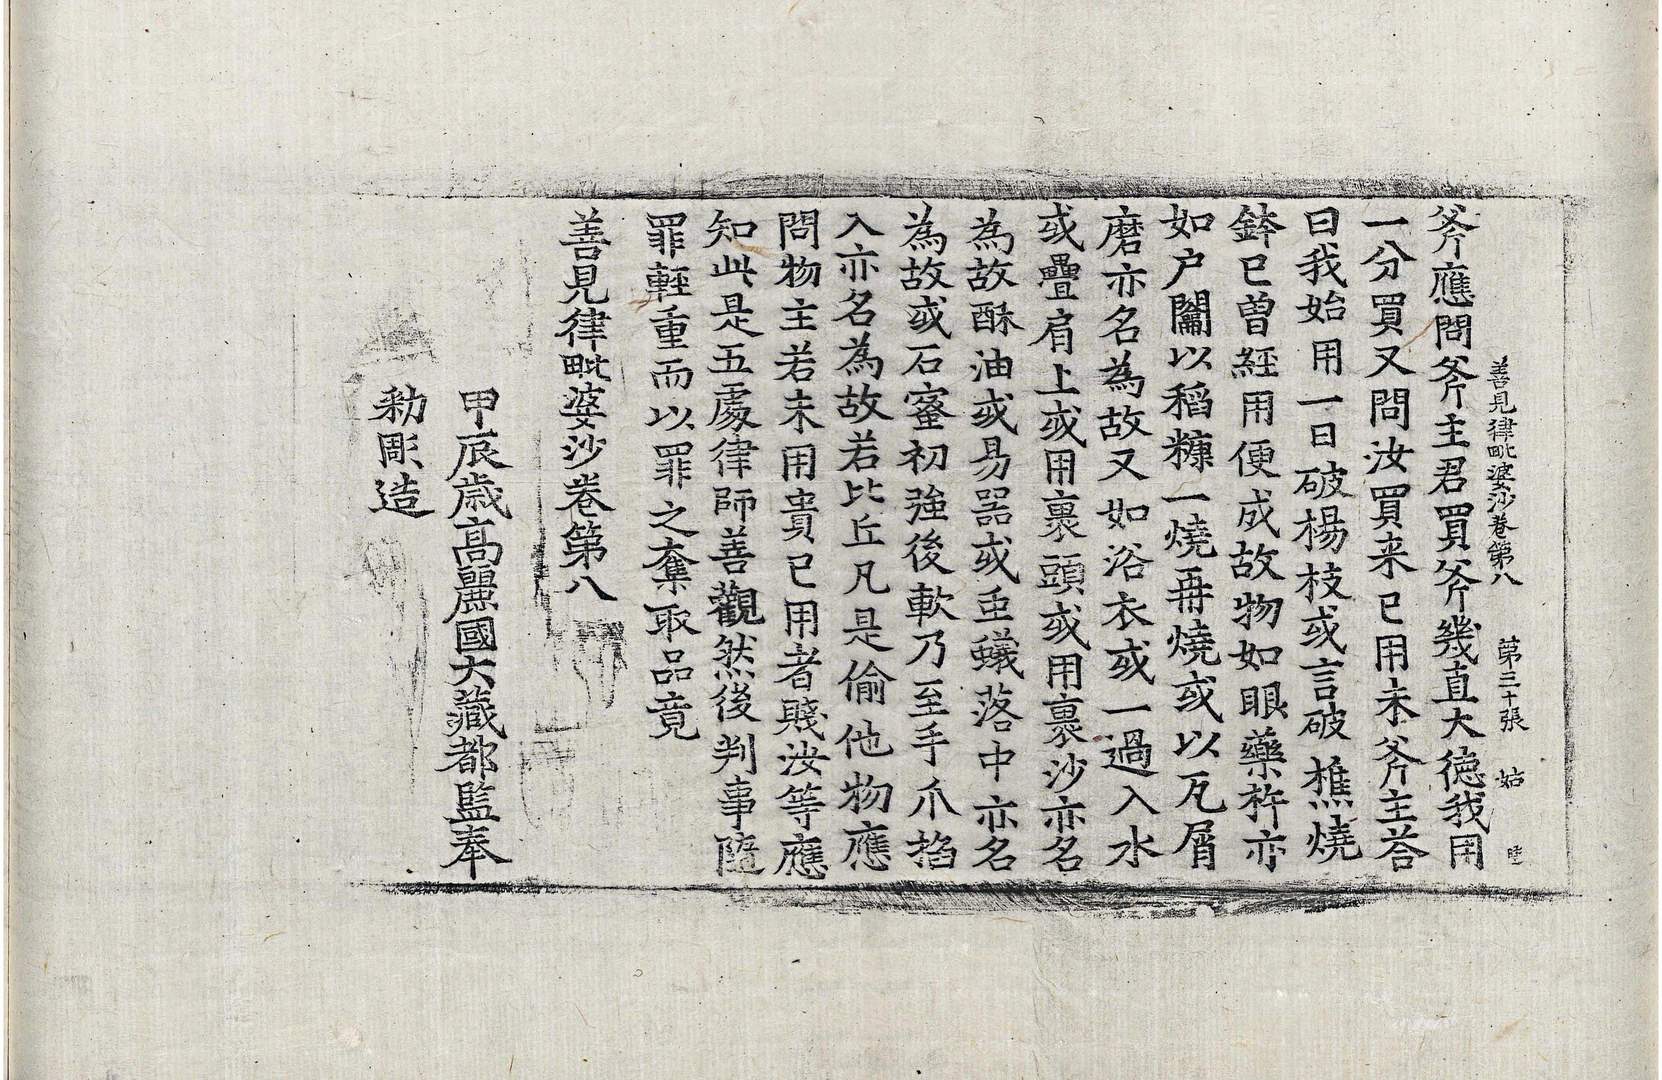 善見律毗婆沙卷第八 第三十張 姑
斧應問斧主君買斧幾直大德我用
一分買又問汝買来已用未斧主荅
曰我始用一日破楊枝或言破樵燒
鉢已曾經用便成故物如眼藥杵亦
如户闔以稻糠一燒再燒或以瓦屑
磨亦名為故又如浴衣或一過入水
或疊肩上或用裹頭或用裹沙亦名
為故酥油或易器或虫蟻落中亦名
為故或石蜜初強後軟乃至手爪掐
入亦名為故若比丘凡是偷他物應
問物主若未用貴已用者賤汝等應
知此是五處律師善觀然後判事隨
罪輕重而以罪之奪取品竟
善見律毗婆沙卷第八
甲辰歲高麗國大藏都監奉
勑彫造